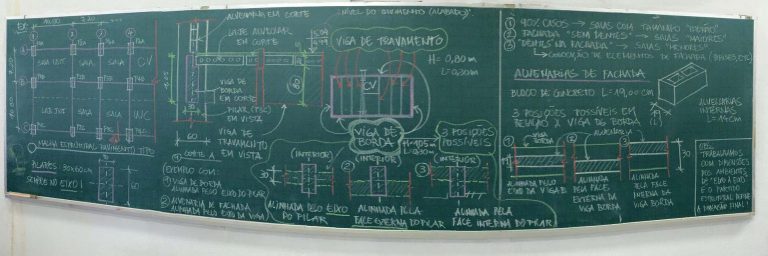 10,00
7,20
SALA
SALA
CV
SALA
SALA
WC
MALHA ESTRUTURAL PAVIMENTO TIPO
PILARES 30x60cm
SEMPRE NO EIXO!
30
60
ALVENARIA EM CORTE
LAJE ALVEOLAR
EM CORTE
VIGA DE
BORDA
EM CORTE
PILAR
EM VISTA
60
VIGA DE
TRAVAMENTO
EM VISTA
CORTE A
EXEMPLO COM:
VIGA DE BORDA
ALINHADA PELO EIXO DO PILAR
ALVENARIA DE FACHADA
ALINHADA PELO EIXO DA VIGA
NÍVEL DO PAVIMENTO (ACABADO)
VIGA DE TRAVAMENTO
H=0,80m
L=0,30m
80
CV
VIGA DE
BORDA
L=0,30m
3 POSIÇÕES
POSSÍVEIS
(INTERIOR)
(INTERIOR)
(INTERIOR)
2
3
30
ALINHADA PELO EIXO
DO PILAR
ALINHADA PELA
FACE EXTERNA DO PILAR
ALINHADA PELA
FACE INTERNA DO PILAR
1 90% CASOS → SALAS COM TAMANHO
2 FACHADA "SEM DENTES" → SALAS "MAIORES"
3 "DENTES NA FACHADA" → SALAS "MENORES"
COLOCAÇÃO DE ELEMENTOS DE FACHADA (BRISES, ETC)
ALVENARIAS DE FACHADA
BLOCO DE CONCRETO L=19,00cm
3 POSIÇÕES POSSÍVEIS EM
RELAÇÃO À VIGA DE BORDA
19
(L)
ALVENARIAS
INTERNAS
L=14cm
1
VIGA
BORDA
2
ALVENARIA
3
30
ALINHADA PELO
EIXO DA VIGA B.
ALINHADA
PELA FACE
EXTERNA DA
VIGA BORDA
ALINHADA
PELA FACE
INTERNA DA
VIGA BORDA
OBS.
TRABALHAMOS
COM DIMENSÕES
DOS AMBIENTES
DE "EIXO A EIXO"
E O PARTIDO
ESTRUTURAL DEFINE
A DIMENSÃO FINAL!